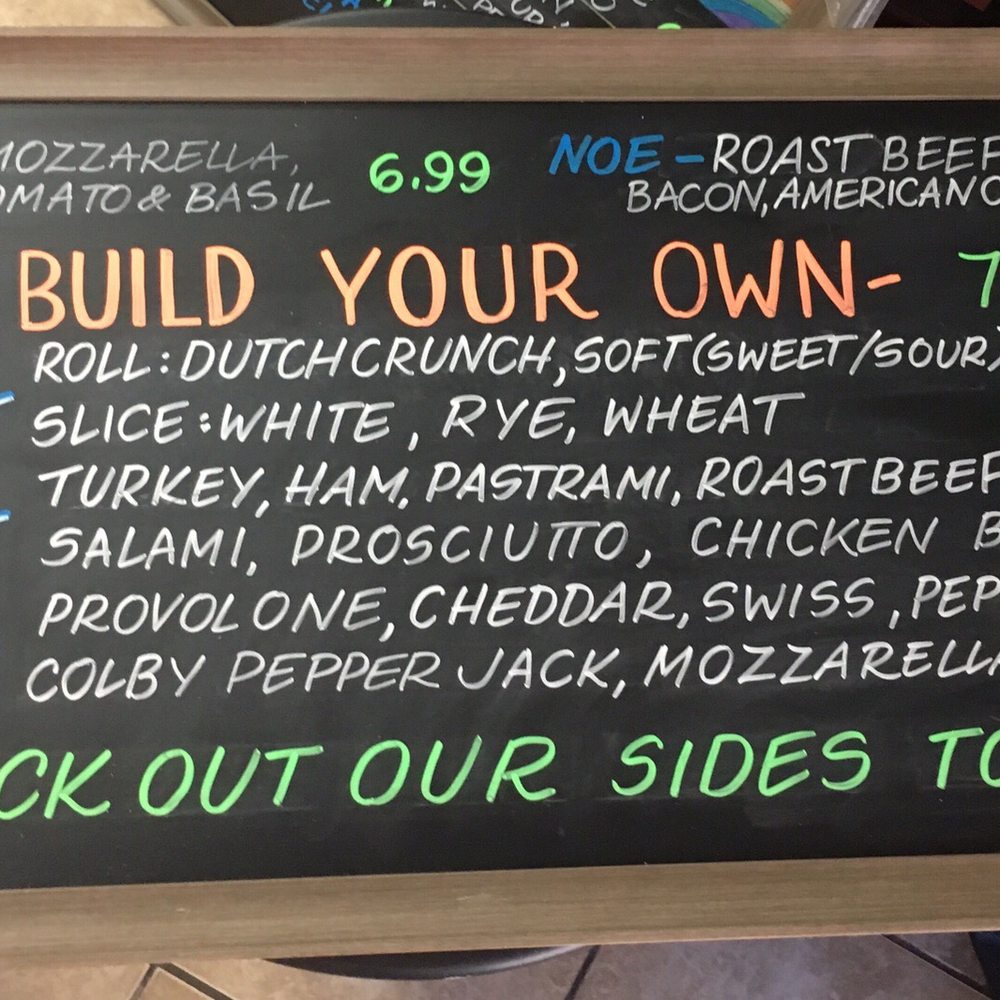 MOZZARELLA,
TOMATO & BASIL
6.99
NOE - ROAST BEEF
BACON, AMERICAN
BUILD YOUR OWN- 7
ROLL: DUTCHCRUNCH, SOFT (SWEET/SOUR)
SLICE: WHITE, RYE, WHEAT
TURKEY, HAM, PASTRAMI, ROAST BEEF
SALAMI, PROSCIUTTO, CHICKEN B
PROVOLONE, CHEDDAR, SWISS, PEP
COLBY PEPPER JACK, MOZZARELLA
CK OUT OUR SIDES TO